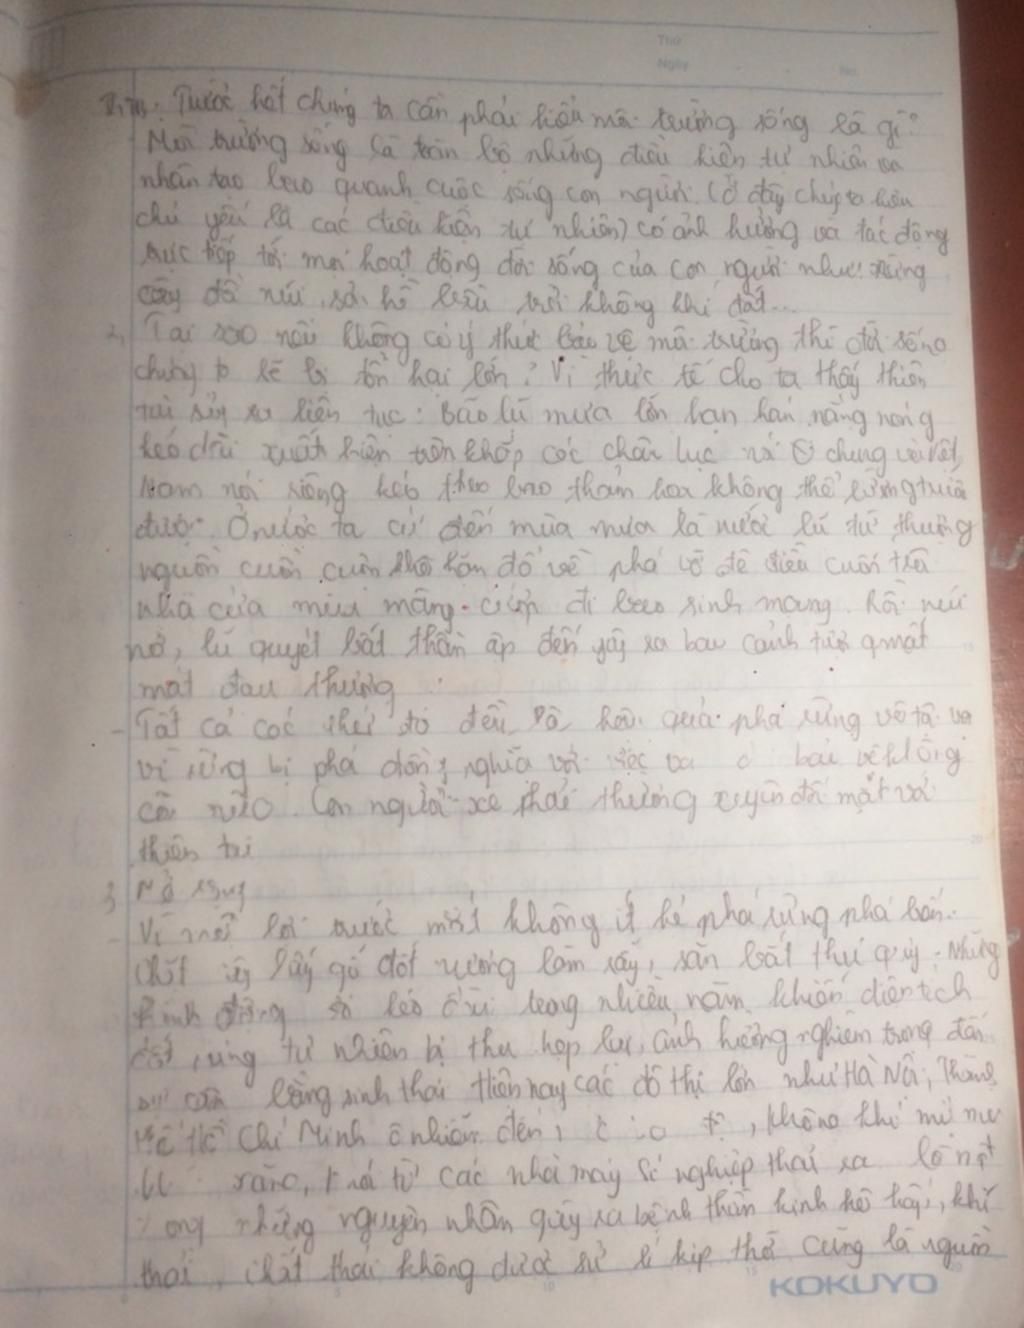 Thứ
Ngày No.
Trước hết chúng ta cần phải hiểu môi trường sống là gì?
Môi trường sống là toàn bộ những điều kiện tự nhiên và
nhân tạo bao quanh cuộc sống con người (ở đây chúng ta hiểu
chủ yếu là các điều kiện tự nhiên) có ảnh hưởng và tác động
trực tiếp tới mọi hoạt động đời sống của con người như: rừng
cây đồi núi, hồ trời không khí đất...
2, Tại sao nếu không có ý thức bảo vệ môi trường thì đời sống
chúng ta sẽ bị tổn hại lớn? Vì thực tế cho ta thấy thiên
tai xảy ra liên tục: Bão lũ mưa lớn hạn hán nắng nóng
kéo dài xuất hiện trên khắp các châu lục nói chung và Việt
Nam nói riêng kéo theo bao thảm họa không thể lường trước
được. Ở nước ta cứ đến mùa mưa là nước lũ từ thượng
nguồn cuồn cuộn đổ về phá vỡ đê điều cuốn trôi
nhà cửa mùa màng. cướp đi bao sinh mạng. Rồi núi
nở, lũ quyét bất thần ập đến gây ra bao cảnh tượng mất
mát đau thương
- Tất cả các thứ đó đều là hậu quả phá rừng vô tội vạ
vì rừng bị phá đồng nghĩa với việc bảo vệ không
còn nữa. Con người sẽ phải thường xuyên đối mặt với
thiên tai
3, Mở rộng
- Vì mối lợi trước mắt không ít kẻ phá rừng phá bán.
Chặt cây lấy gỗ đốt nương làm rẫy, săn bắt thú quý. Những
hành động kéo dài trong nhiều năm khiến diện tích
đất rừng tự nhiên bị thu hẹp lại, ảnh hưởng nghiêm trọng đến
sự cân bằng sinh thái Hiện nay các đô thị lớn như Hà Nội, Thành
Hồ Chí Minh ô nhiễm đến, không khí mù mịt
khói từ các nhà máy xí nghiệp thải ra là một
trong những nguyên nhân gây ra bệnh thần kinh hô hấp, khí
thải, chất thải không được sử lí kịp thời cũng là nguồn
KOKUYO